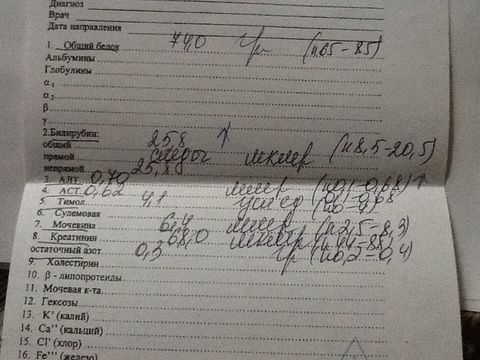 Диагноз
Врач
Дата направления
1. Общий белок 74,0 г/л (N65-85)
Альбумины
Глобулины
α1
α2
β
γ
2.Билирубин:
общий 25,8 ↑
прямой следы мкмл (N8,5-20,5)
непрямой 25,8
3. АЛТ 0,70 (N0,1-0,68)↑
4. АСТ 0,62 0,1-0,68
5. Тимол 4,1
6. Сулемовая
7. Мочевина 6,4 (N2,5-8,3)
8. Креатинин 68,0
остаточный азот 0,3 г/л (N0,2-0,4)
9. Холестирин
10. β - липопротеиды
11. Мочевая к-та
12. Гексозы
13. K' (калий)
14. Ca'' (кальций)
15. Cl' (хлор)
16. Fe''' (железо)